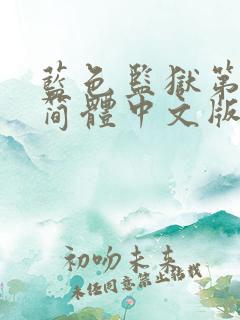 藍色監獄第
简體中文版
初吻未来
未任同意禁止转載